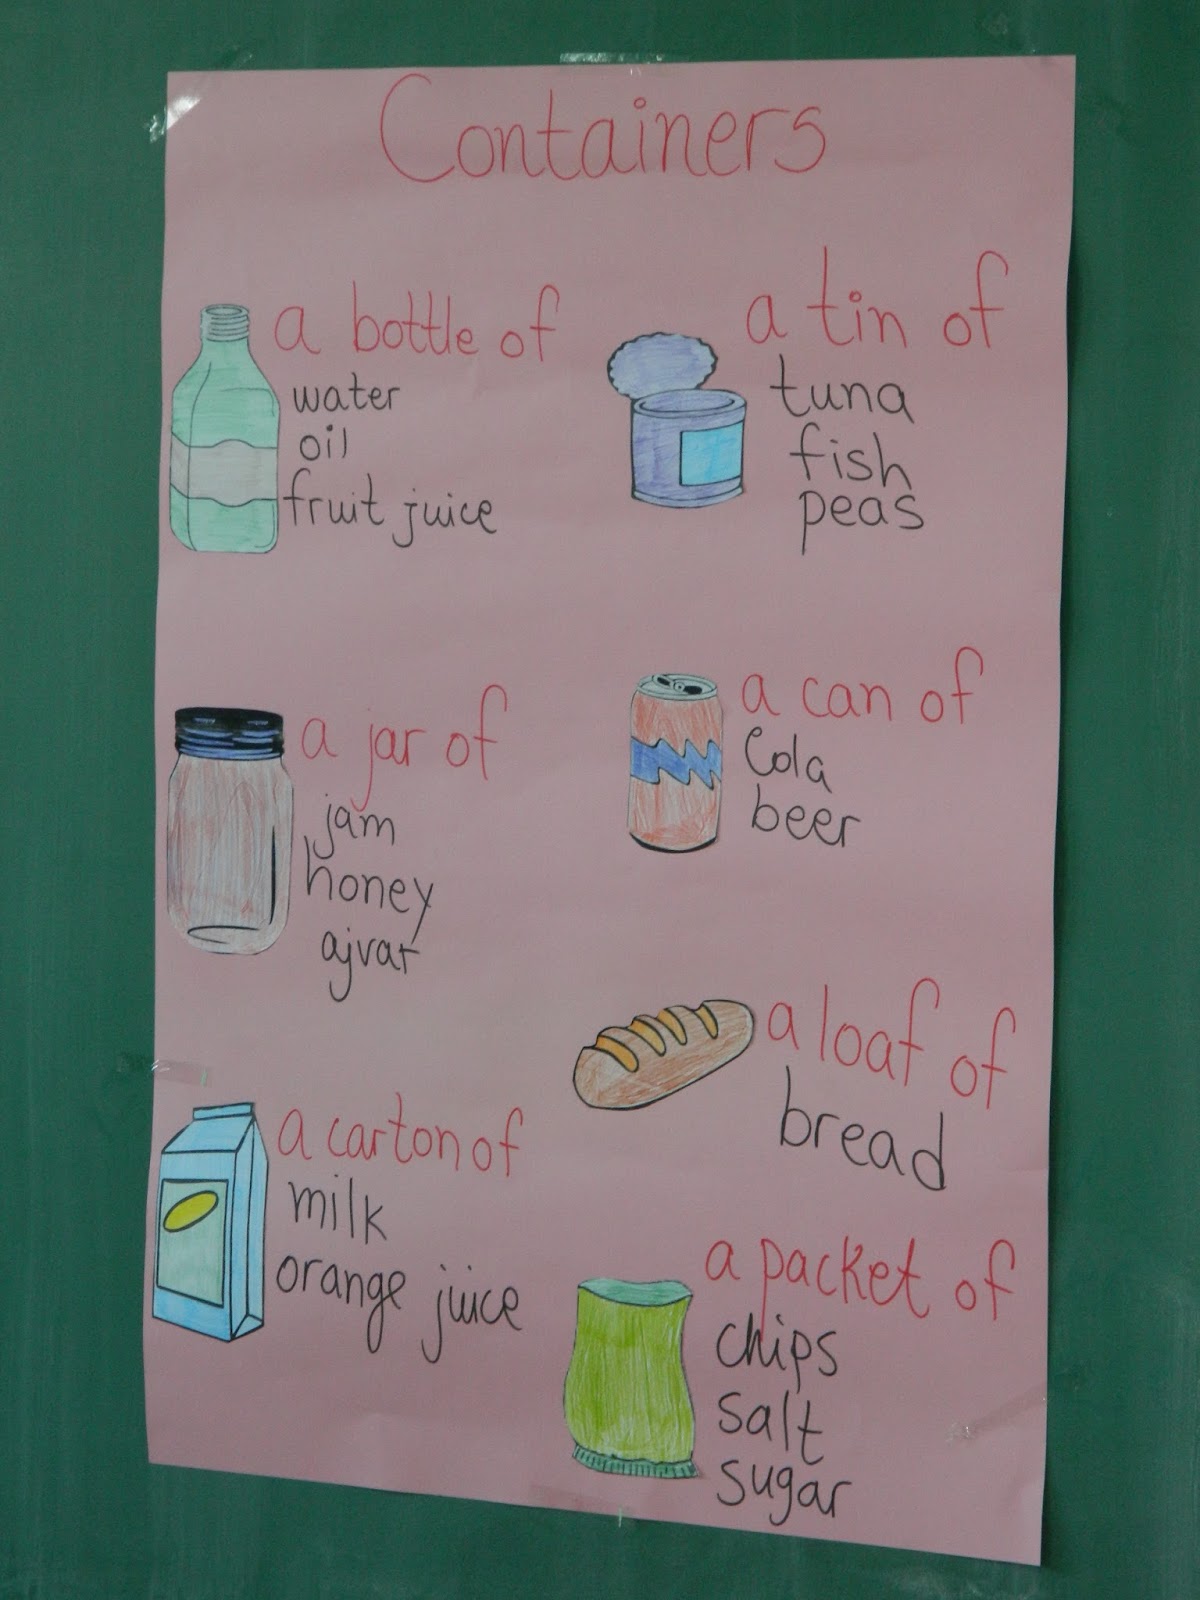 Containers
a bottle of
water
oil
fruit juice
a tin of
tuna
fish
peas
a jar of
jam
honey
ajvar
a can of
Cola
beer
a loaf of
bread
a carton of
milk
orange juice
a packet of
chips
salt
sugar